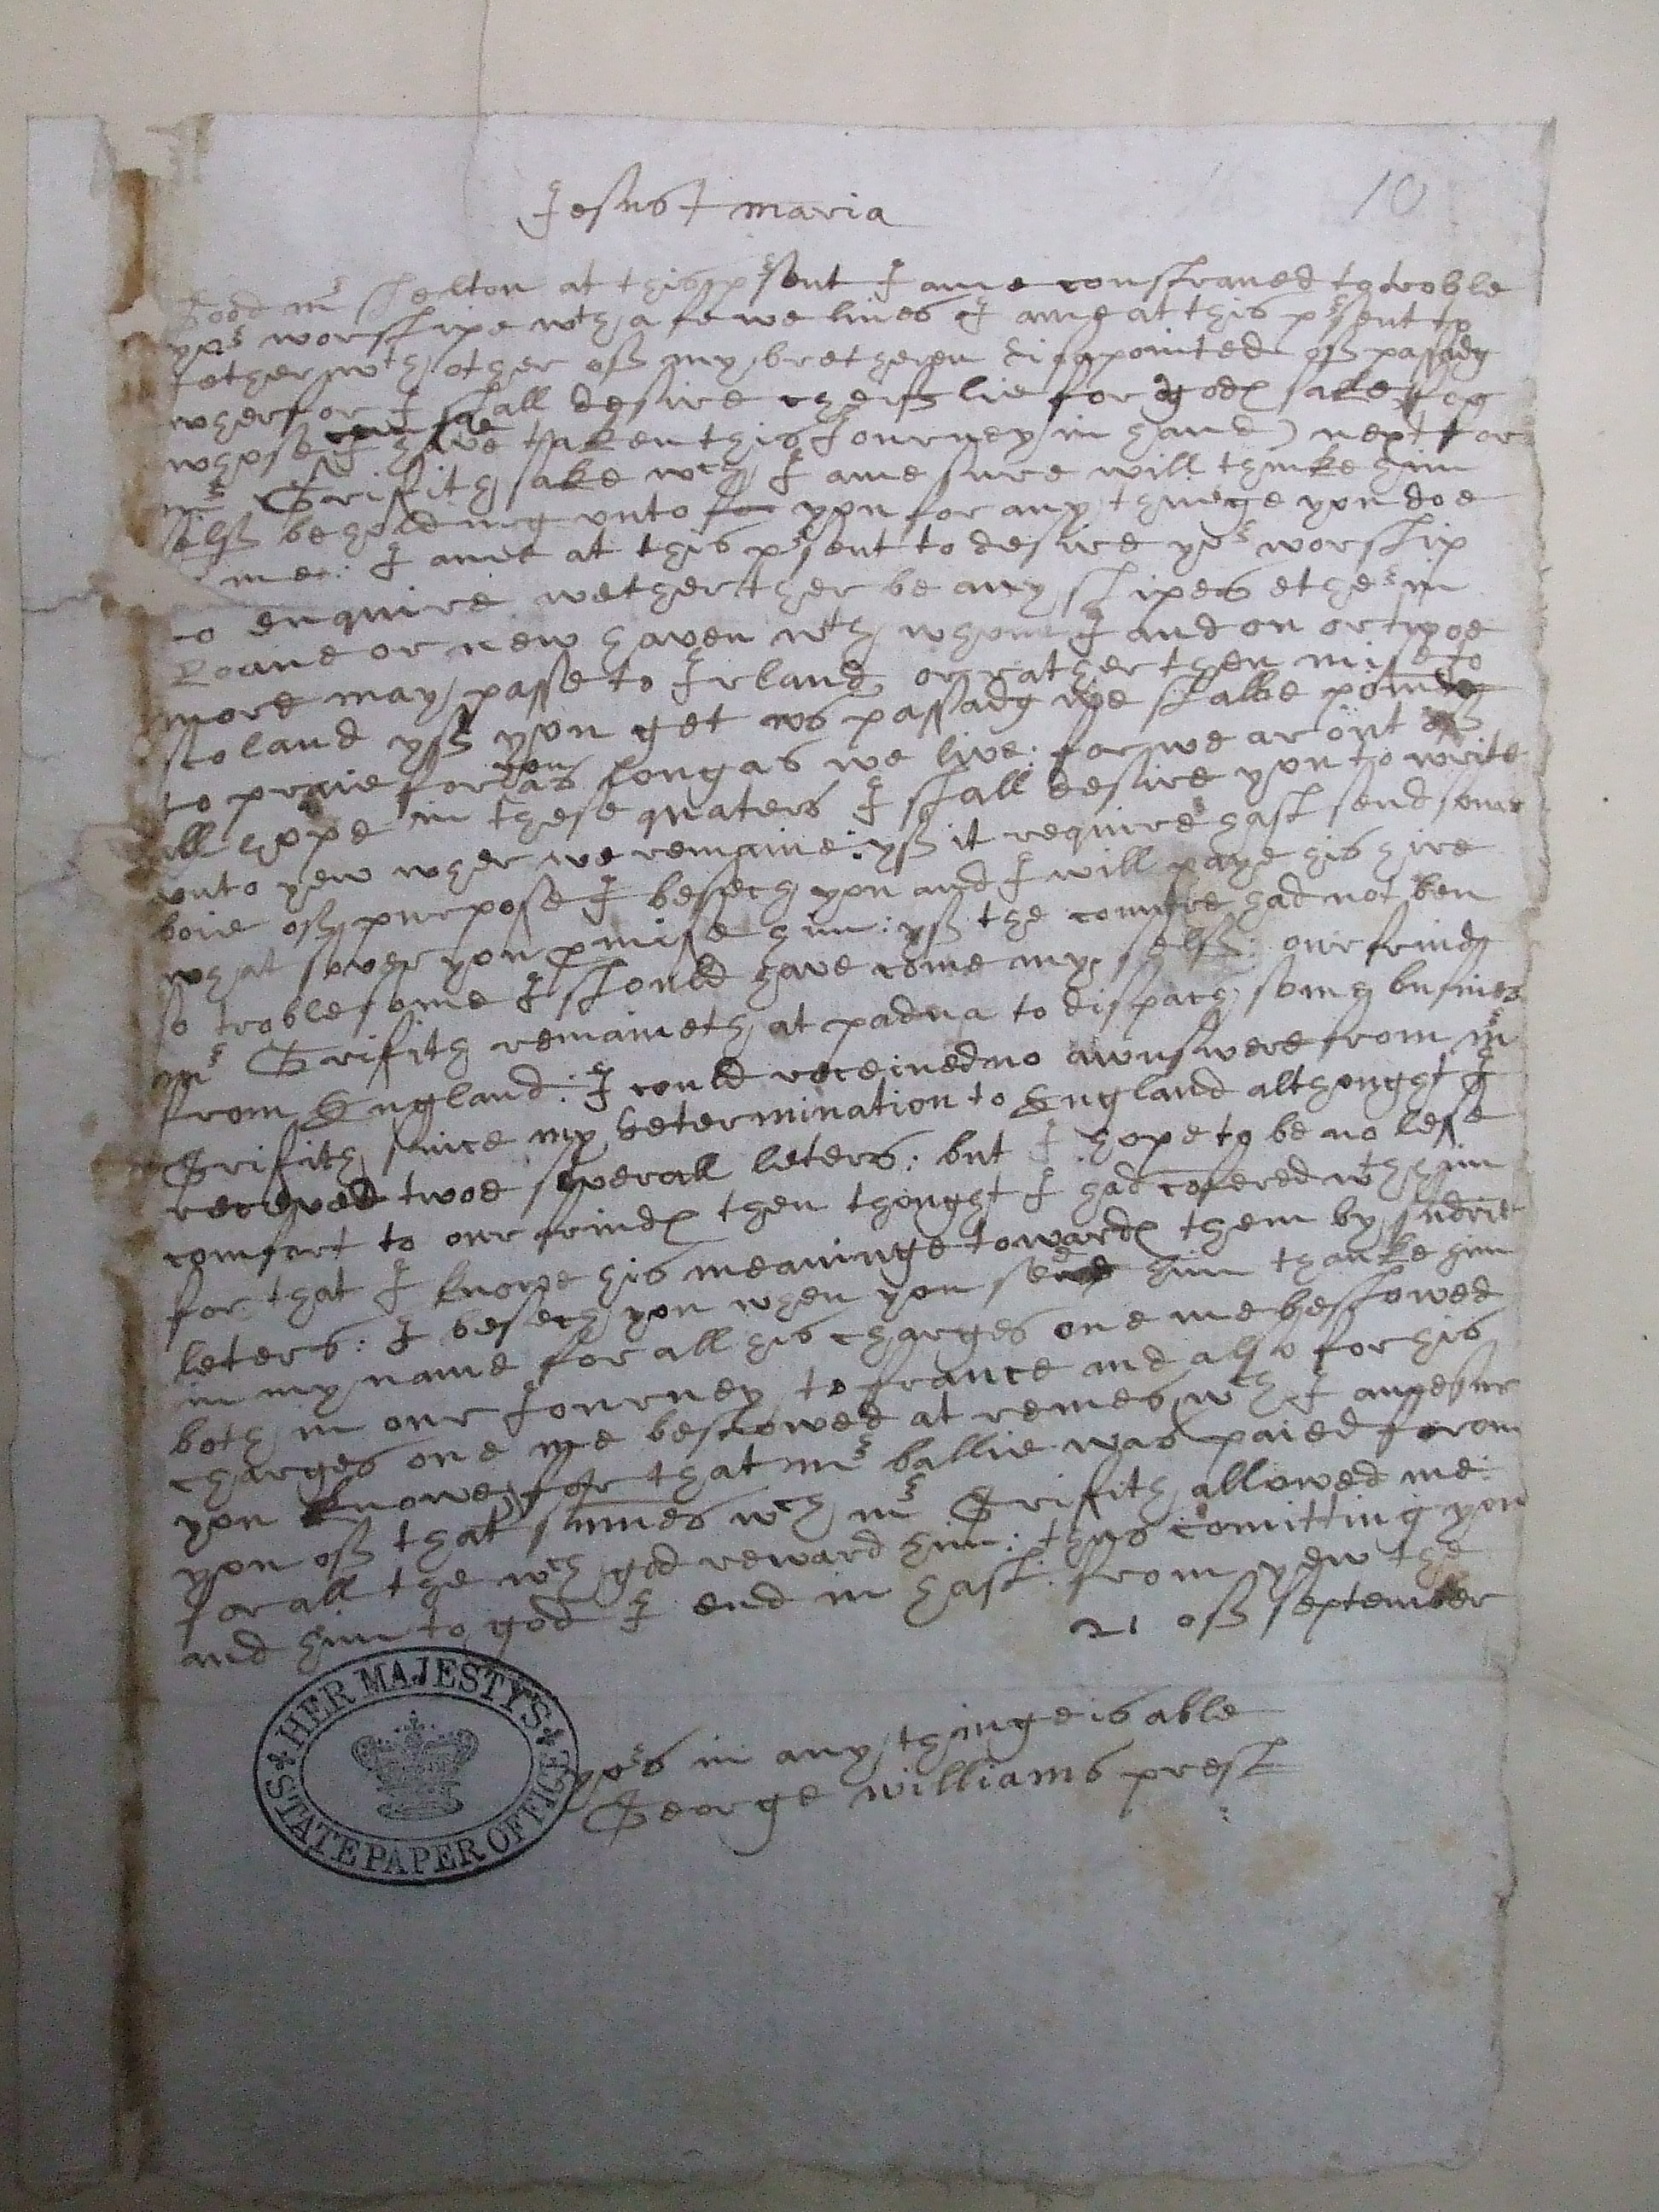 Jesus † maria
10
Good mr skelton at this psent I ame constraned to troble
yor worshipe wth a fewe lines I ame at this psent to
gether wth other off my bretheren disapointed off passadg
wherfor I shall desire cheflie for godes sake for
whose I have taken this Journey in hand) next for
mr Griffith sake wch I ame sure will thinke him
selff beholding unto you for any thinge you doe
me: I ame at this psent to desire yor worship
to enquire wether ther be any shipes ether in
Roane or new haven wth whome I and on or twoe
more may passe to Irland or rather then mise to
scoland yff you get us passadg we shalbe
to praie for you as long as we live: for we ar out off
all hope in these quaters I shall desire you to write
unto yew wher we remaine: yff it require hast send some
boie off purpose I besech you and I will paye his hire
what sover you pmise him: yff the countre had not ben
so troblesome I should have come my selff: our frindg
mr Grifith remaineth at padua to dispach some busines
from England: I could received no awnswere from mr
Grifith since my determination to England althought I
receved twoe severall leters: but I hope to be no lese
comfort to our frindes then thought I had cofered wth him
for that I knowe his meaninge towardes them by
leters: I besech you when you send him thanke him
in my name for all his charges one me bestowed
both in our Journey to france and also for his
charges one me bestowed at remes wch I ame sure
you knowe for that mr ballie was paied from
you off that summes wch mr Grifith allowed me:
for all the wch god reward him: thus comitting you
and him to god I end in hast: from yew the
21 off september
yors in any thinge is able
George williams prest
HER MAJESTY'S STATE PAPER OFFICE